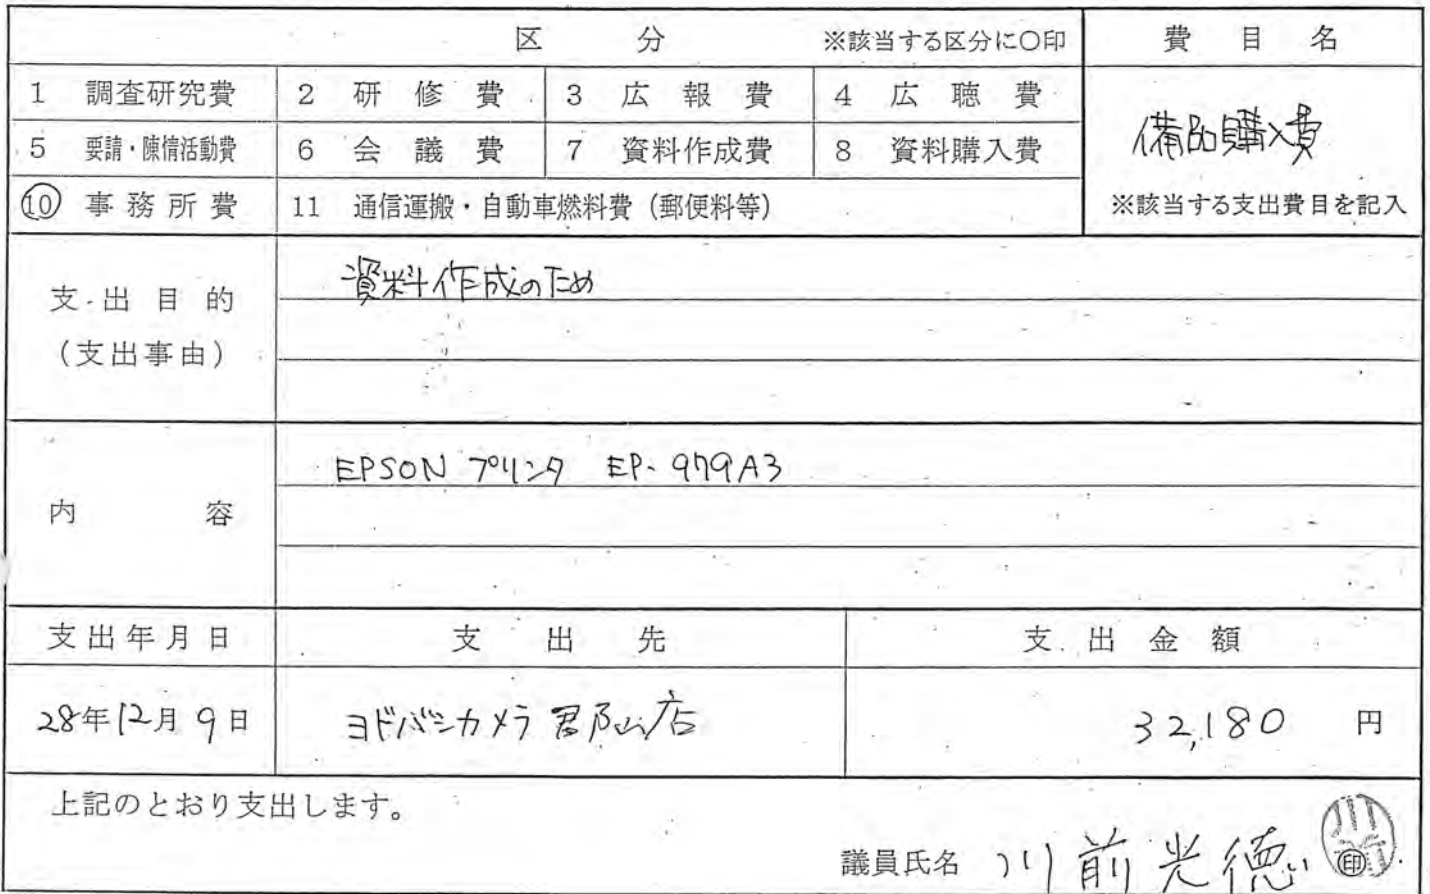 区分 ※該当する区分に○印 費目名
1 調査研究費 2 研修費 3 広報費 4 広聴費
備品購入費
5 要請・陳情活動費 6 会議費 7 資料作成費 8 資料購入費
⑩ 事務所費 11 通信運搬・自動車燃料費(郵便料等) ※該当する支出費目を記入
支出目的
(支出事由)
資料作成のため
内容
EPSON プリンタ EP-979A3
支出年月日 支出先 支出金額
28年12月9日 ヨドバシカメラ 郡山店 32,180 円
上記のとおり支出します。
議員氏名 川前光徳 ㊞
川前